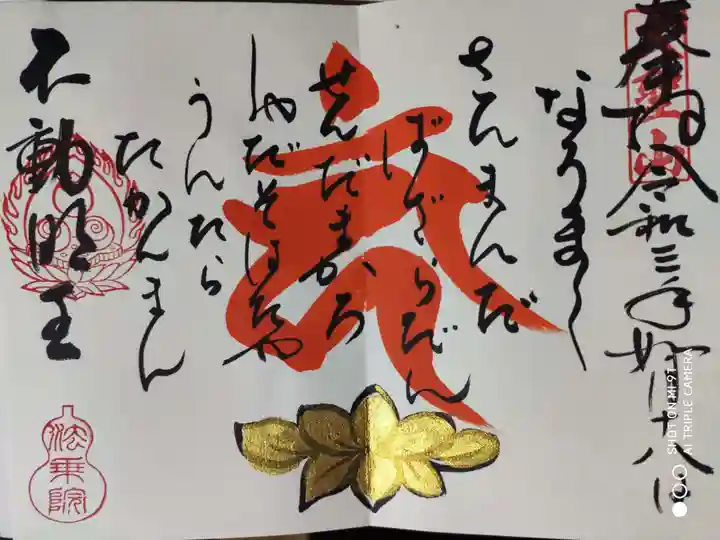 奉拝 令和三年 如月
なうまく
さんまんだ
ばざらだん
せんだまかろ
しやだそはたや
うんたら
たかんまん
不動明王
法乗院
SHOT ON MI 9T
AI TRIPLE CAMERA